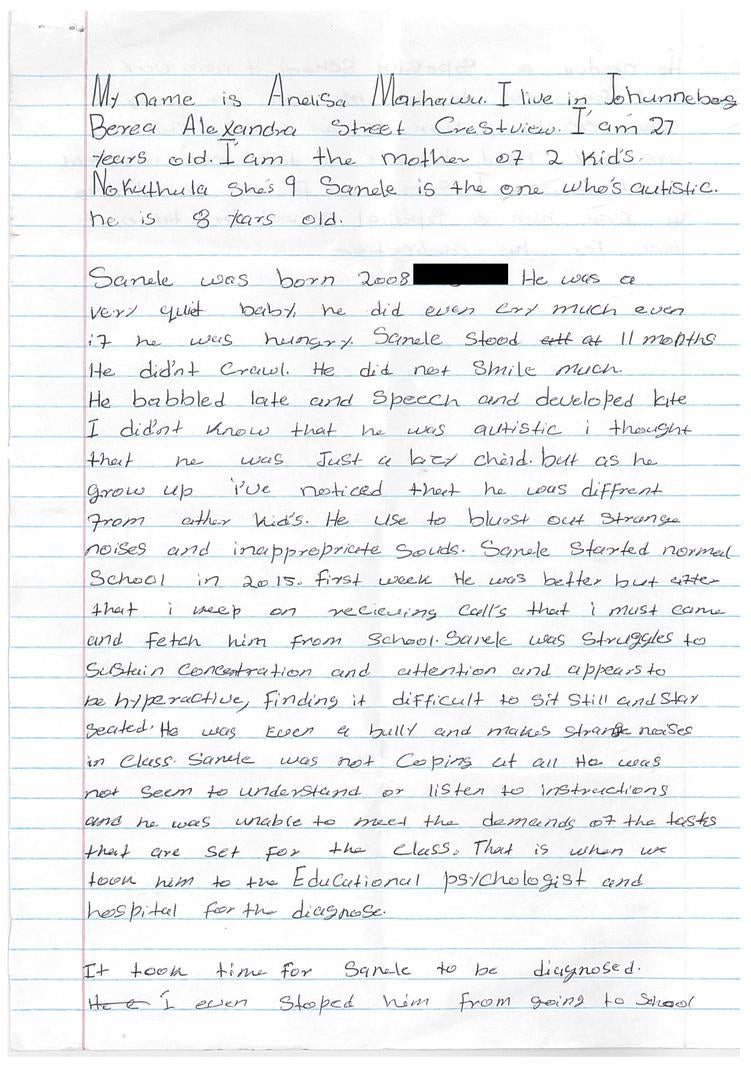 My name is Anelisa Marhawu. I live in Johunneberg
Berea Alexandra Street Crestview. I'am 27
years old. I'am the mother of 2 kid's.
Nokuthula she's 9 Sanele is the one who's autistic.
he is 8 years old.
Sanele was born 2008 He was a
very quiet baby, he did even cry much even
if he was hungry. Sanele stood at 11 months
He did'nt crawl. He did not smile much.
He babbled late and speech and developed late
I did'nt know that he was autistic i thought
that he was Just a lazy child. but as he
grow up i've noticed that he was diffrent
from other kid's. He use to blurst out strange
noises and inappropriate souds. Sanele started normal
School in 2015. first week He was better but after
that i keep on recieving call's that i must come
and fetch him from school. Sanele was struggles to
sustain concentration and attention and appears to
be hyperactive, finding it difficult to sit still and stay
seated. He was even a bully and makes strange noises
in class. Sanele was not coping at all He was
not seem to understand or listen to instructions
and he was unable to meet the demands of the tasks
that are set for the class. That is when we
took him to the Educational psychologist and
hospital for the diagnose.
It took time for Sanele to be diagnosed.
I even stoped him from going to school